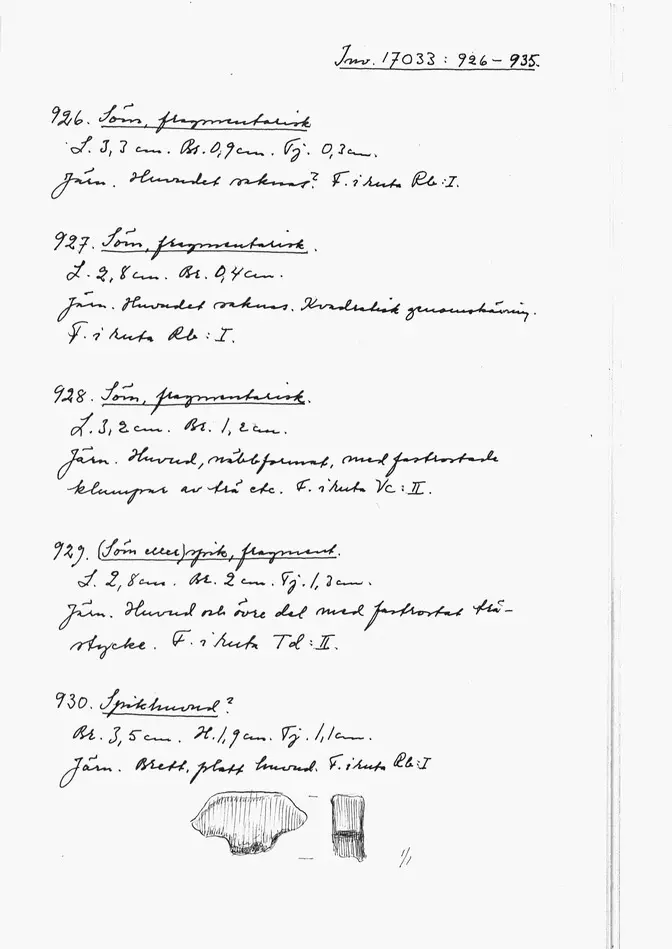 Inv. 17033 : 926 – 935.
926. Söm, fragmentarisk
L. 3,3 cm. Br. 0,9 cm. Tj. 0,3 cm.
Järn. Huvudet saknas? F. i ruta Rb:I.
927. Söm, fragmentarisk.
L. 2,8 cm. Br. 0,4 cm.
Järn. Huvudet saknas. Kvadratisk genomskärning.
F. i ruta Rb : I.
928. Söm, fragmentarisk.
L. 3,2 cm. Br. 1,2 cm.
Järn. Huvud, näbbformat, med fastrostade
klumpar av trä etc. F. i ruta Vc : II.
929. (Söm eller) spik, fragment.
L. 2,8 cm. Br. 2 cm. Tj. 1,3 cm.
Järn. Huvud och övre del med fastrostat trä-
stycke. F. i ruta Td : II.
930. Spikhuvud?
Br. 3,5 cm. H. 1,9 cm. Tj. 1,1 cm.
Järn. Brett, platt huvud. F. i ruta Rb:I
1/1